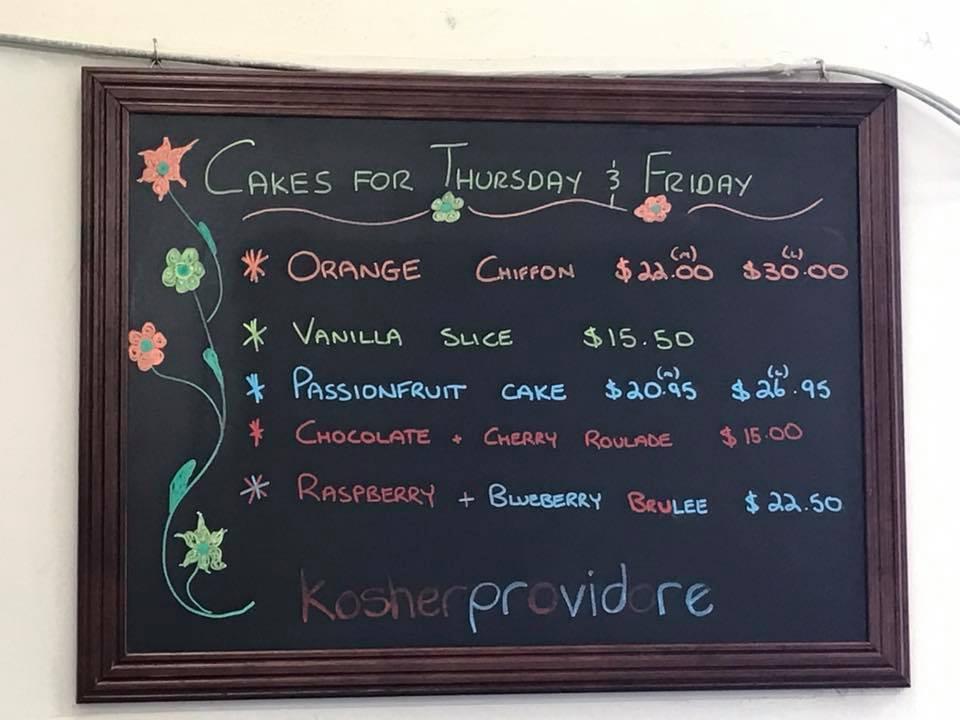 CAKES FOR THURSDAY & FRIDAY
* ORANGE CHIFFON $22.00 (M) $30.00 (L)
* VANILLA SLICE $15.50
* PASSIONFRUIT CAKE $20.95 (M) $26.95 (L)
* CHOCOLATE + CHERRY ROULADE $15.00
* RASPBERRY + BLUEBERRY BRULEE $22.50
kosherprovidore